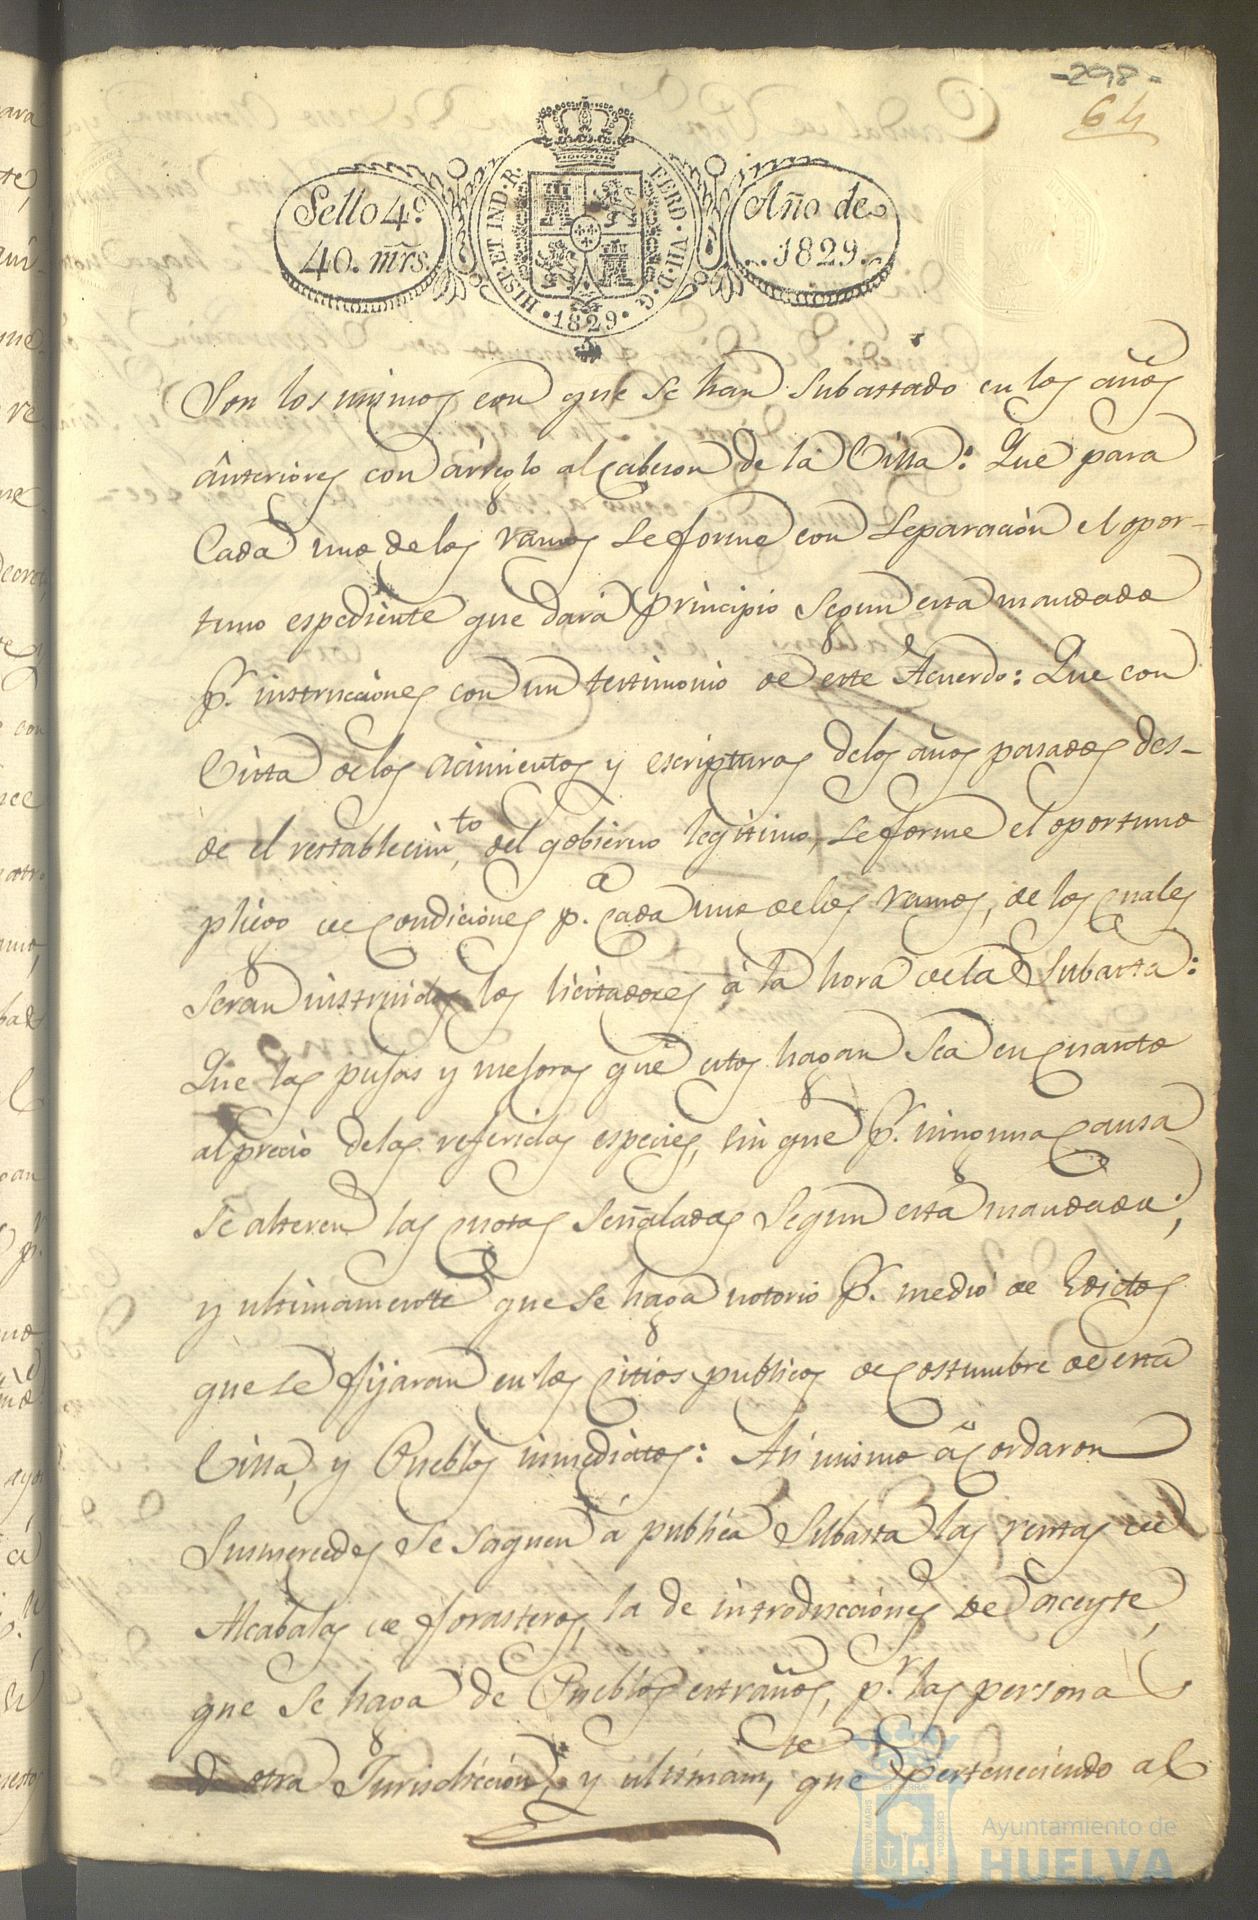 -298-
64
Sello 4º
40. mrs.
HISP. ET IND. R. FERD. VII. D. G. 1829
Año de
1829.
Son los mismos con que se han subastado en los años
anteriores con arreglo al cabeson de la Villa: Que para
Cada uno de los ramos se forme con separación el opor-
tuno espediente que dará principio segun esta mandado
pr. instrucciones con un testimonio de este Acuerdo: Que con
Vista de los acimientos y escripturas delos años pasados des-
de el restablecimto, del gobierno legitimo, se forme el oportuno
pliego de condiciones pa. Cada uno delos ramos, de los cuales
serán instruidos los licitadores á la hora de la Subasta:
Que las pujas y mejoras que estos hagan sea en cuanto
al precio delas referidas especies, sin que pr. ninguna causa
se alteren las cuotas señaladas segun está mandado;
y ultimamente que se haga notorio pr. medio de Edictos
que se fijaran en los Citios publicos de costumbre de esta
Villa, y Pueblos inmediatos: Asi mismo acordaron
Susmercedes se saquen á publica Subasta las rentas de
Alcabalas de forasteros, la de introducciones de aceyte,
que se haga de Pueblos estraños, pr. las persona
de otra Jurisdiccion, y ultimamte, que perteneciendo al
Ayuntamiento de
HUELVA